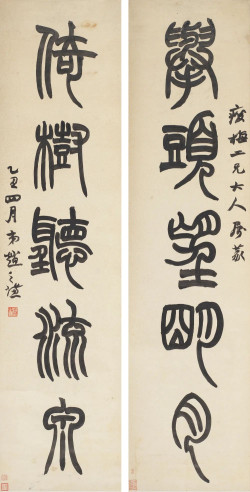 瘦梅二兄大人屬篆
舉頭望明月
倚樹聽流泉
乙丑四月弟趙之謙